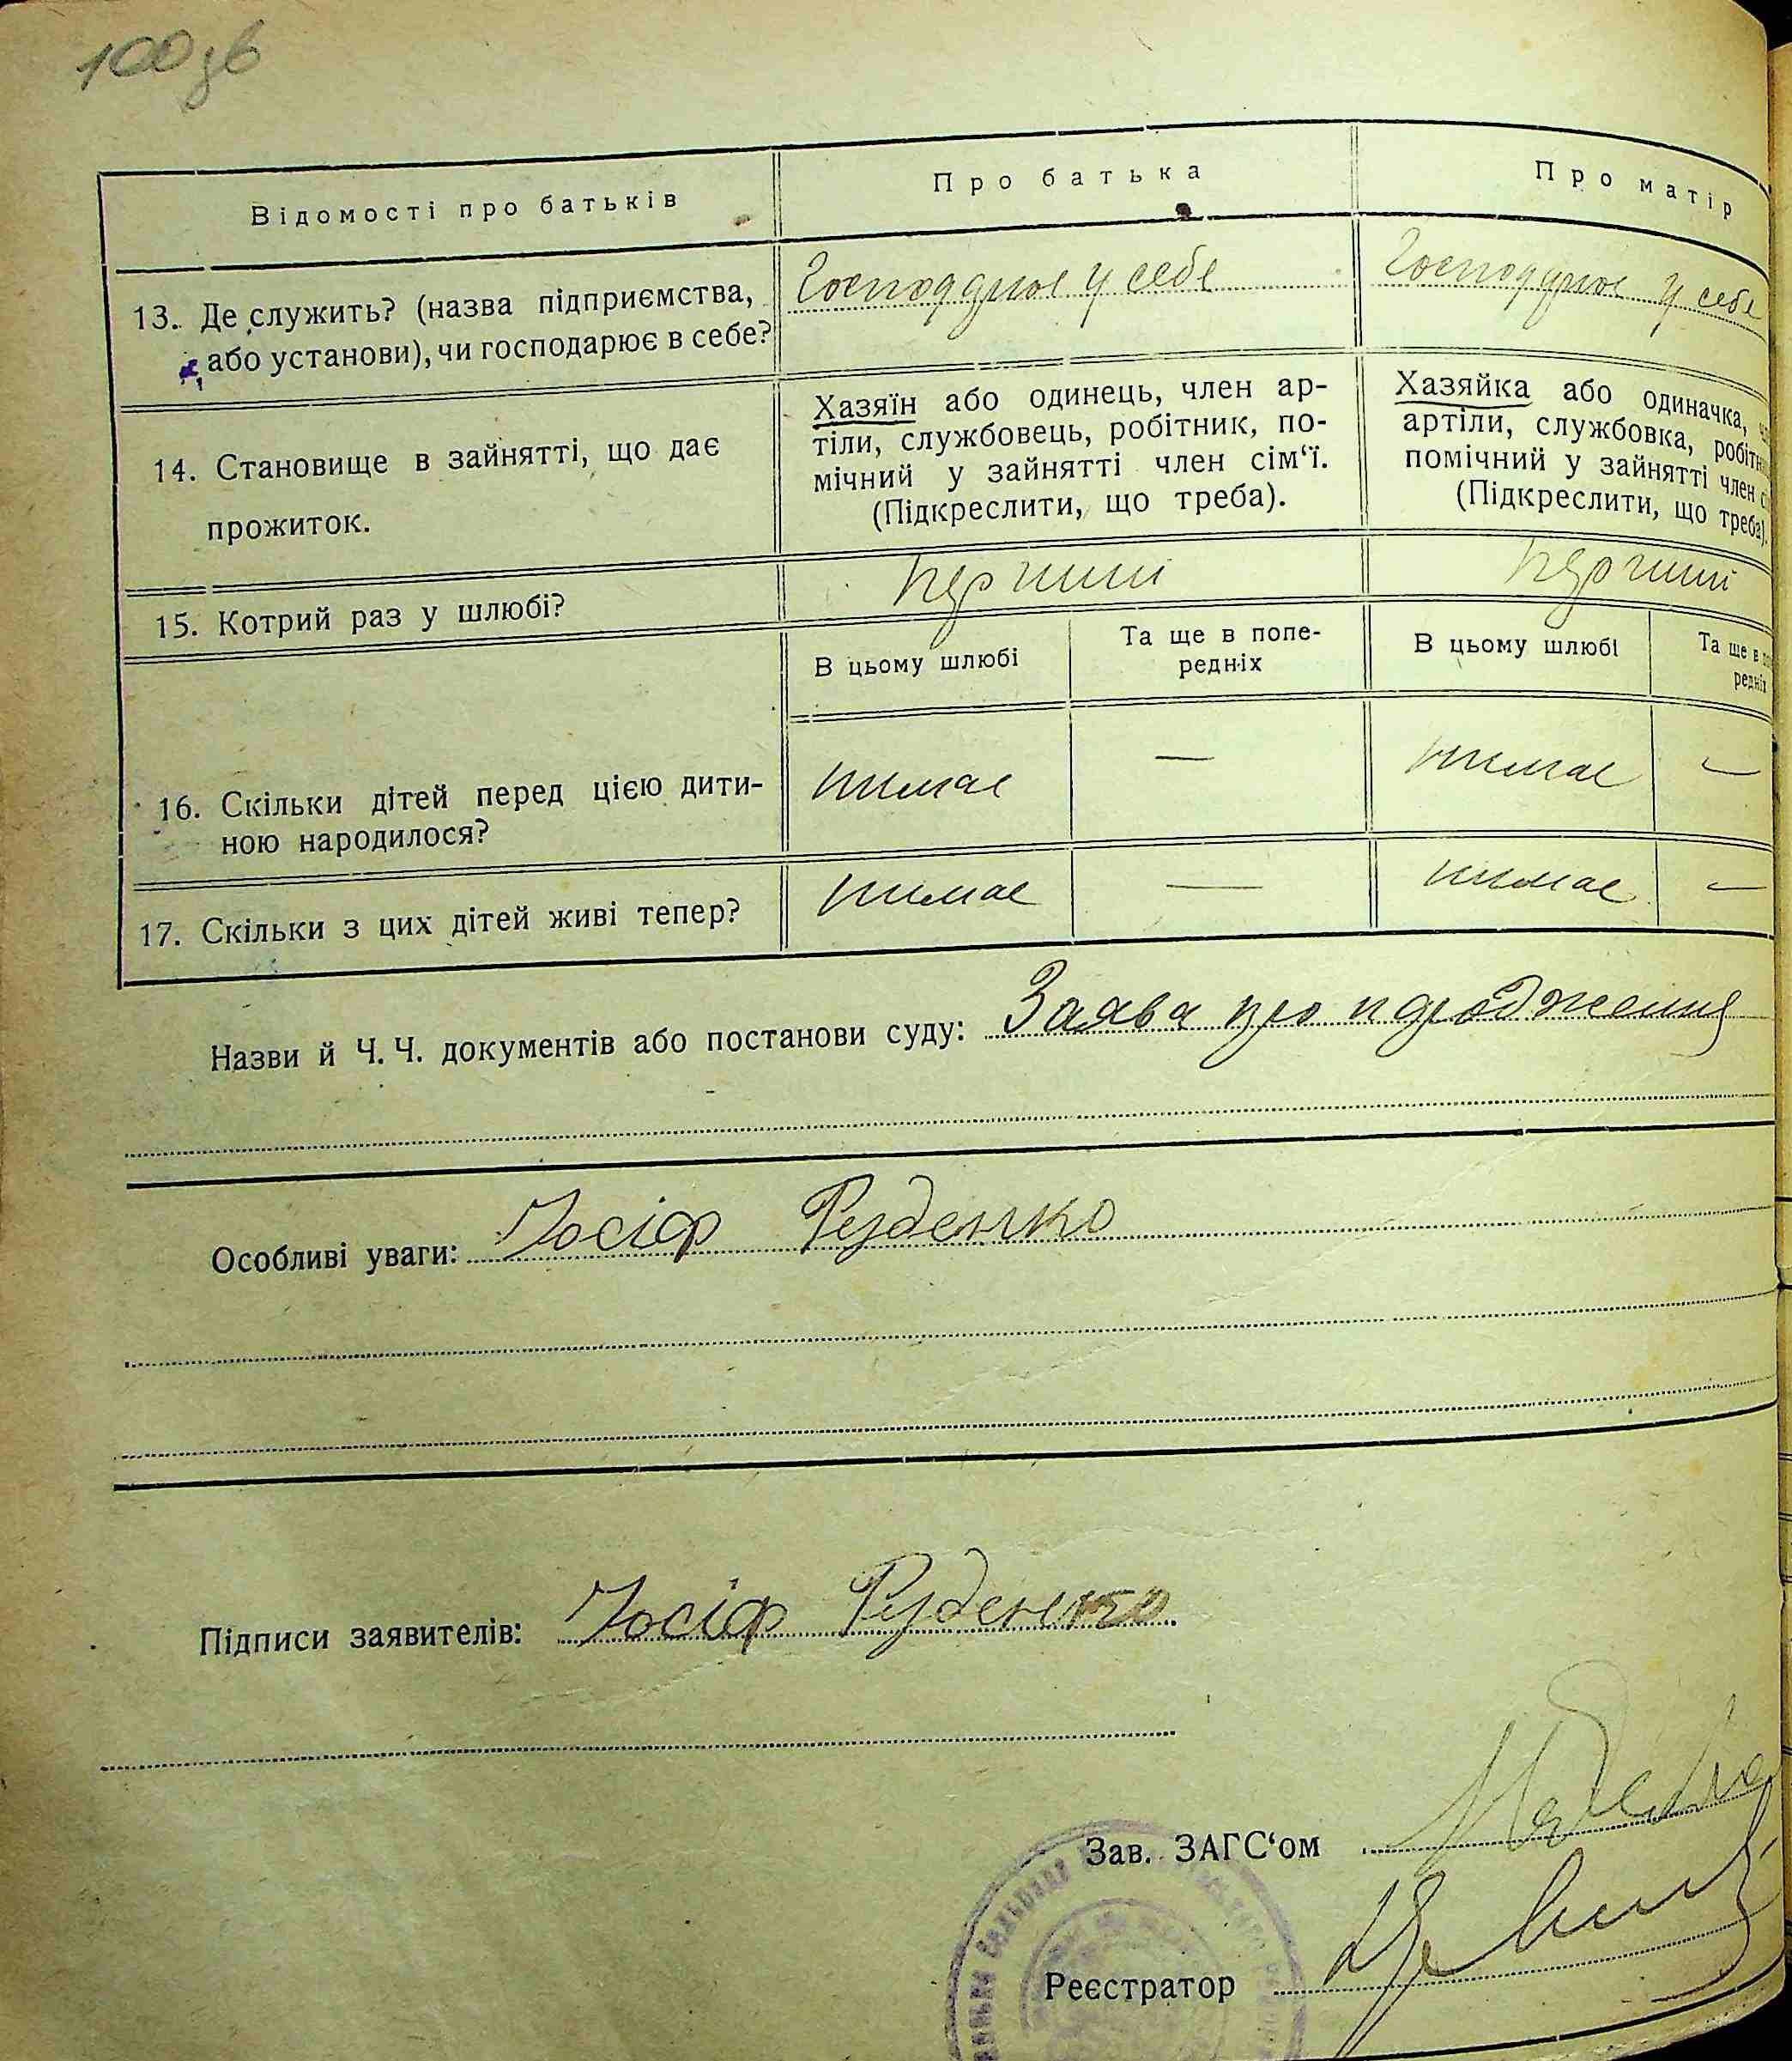 100 зв
Відомості про батьків
Про батька
Про матір
13. Де служить? (назва підприємства,
або установи), чи господарює в себе?
Господдрює у себе
Господдрює у себе
14. Становище в зайнятті, що дає
прожиток.
Хазяїн або одинець, член ар-
тіли, службовець, робітник, по-
мічний у зайнятті член сім‘ї.
(Підкреслити, що треба).
Хазяйка або одиначка,
артіли, службовка,
помічний у зайнятті член
(Підкреслити, що треба).
15. Котрий раз у шлюбі?
перший
перший
В цьому шлюбі
Та ще в попе-
редніх
В цьому шлюбі
Та ще в
редніх
16. Скільки дітей перед цією дити-
ною народилося?
нимає
—
нимає
—
17. Скільки з цих дітей живі тепер?
нимає
—
нимає
—
Назви й Ч. Ч. документів або постанови суду: Заява про народження
Особливі уваги: Йосіф Руденко
Підписи заявителів: Йосіф Руденко
Зав. ЗАГС‘ом
Реєстратор